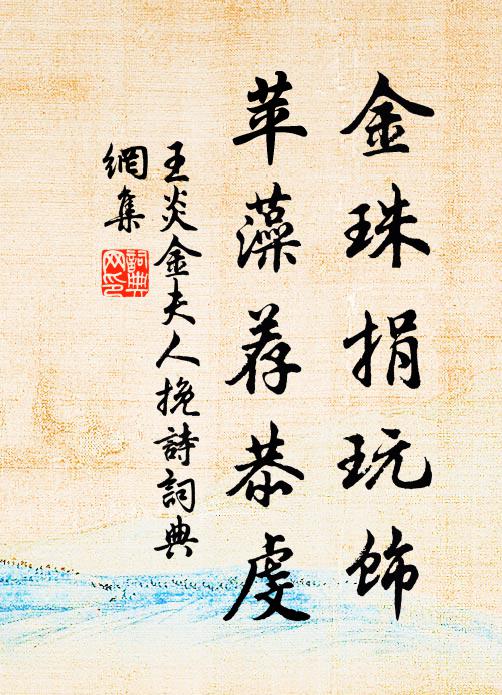 金珠捐玩飾
苹藻荐恭虔
王炎金夫人挽詩詞典
網集
詞典
网印